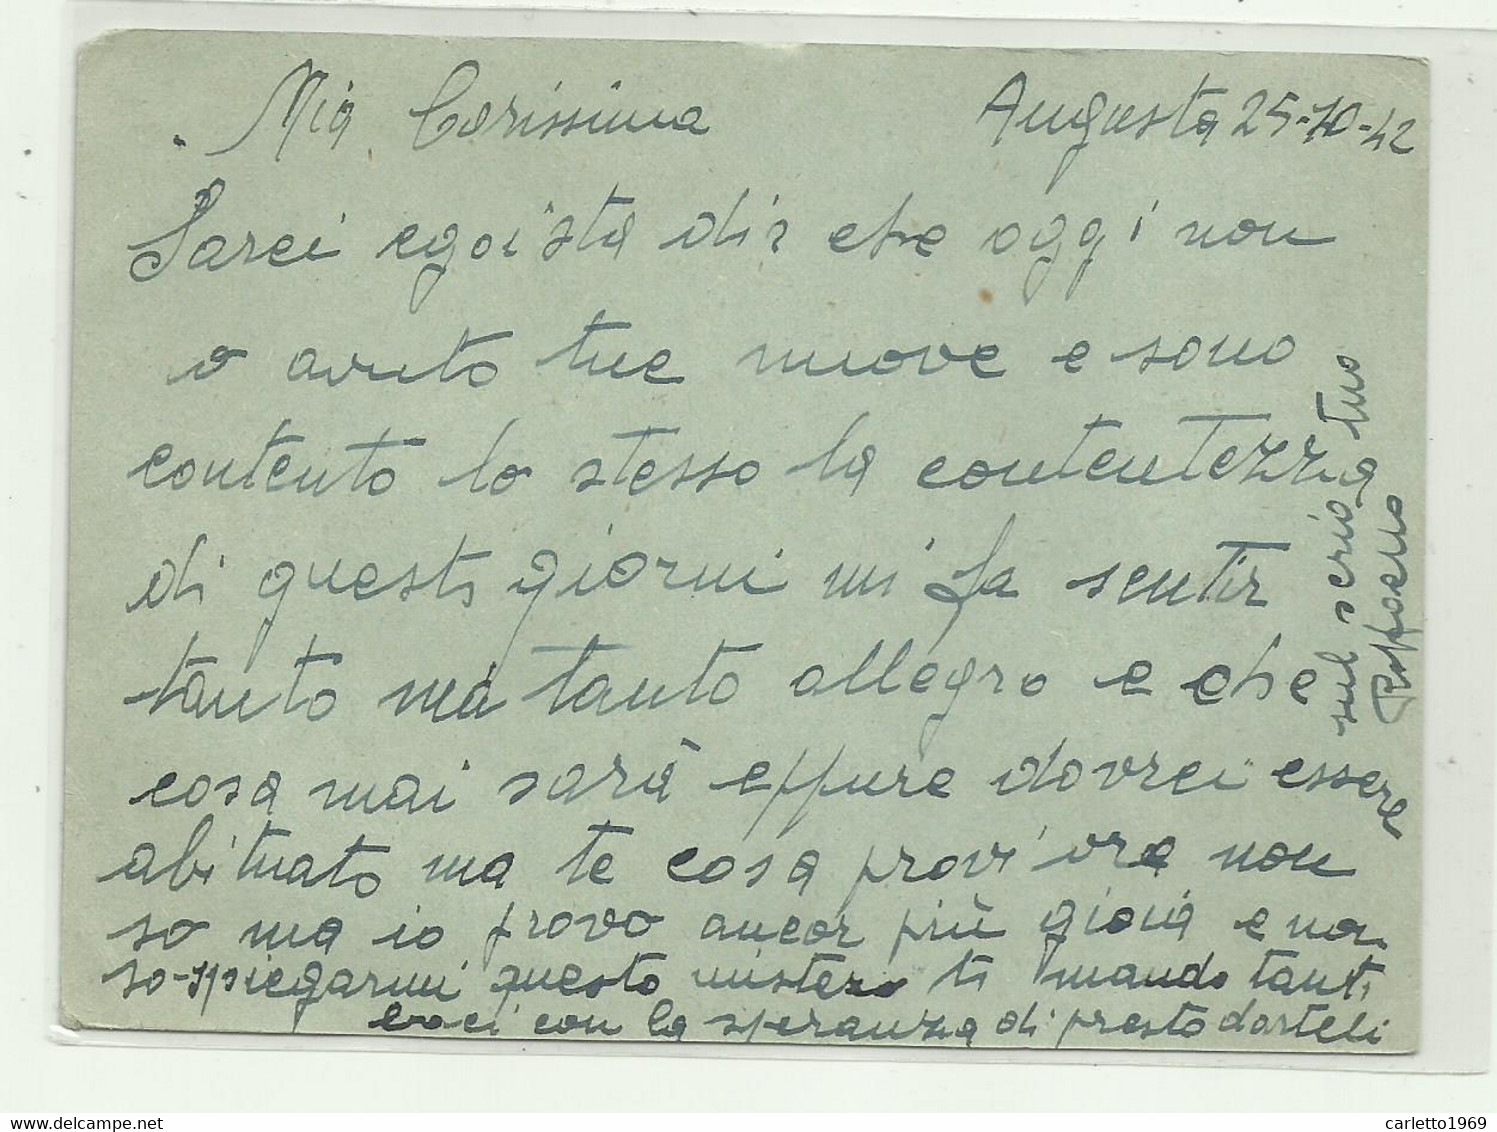 Mia Carissima Augusta 25-10-42
Sarei egoista dir che oggi non
o avuto tue nuove e sono
contento lo stesso la contentezza
di questi giorni mi fa sentir
tanto ma tanto allegro e che
cosa mai sarà eppure dovrei essere
abituato ma te cosa provi ora non
so ma io provo ancor più gioia e non
so spiegarmi questo mistero ti mando tanti
baci con la speranza di presto darteli
sul serio tuo
carletto1969